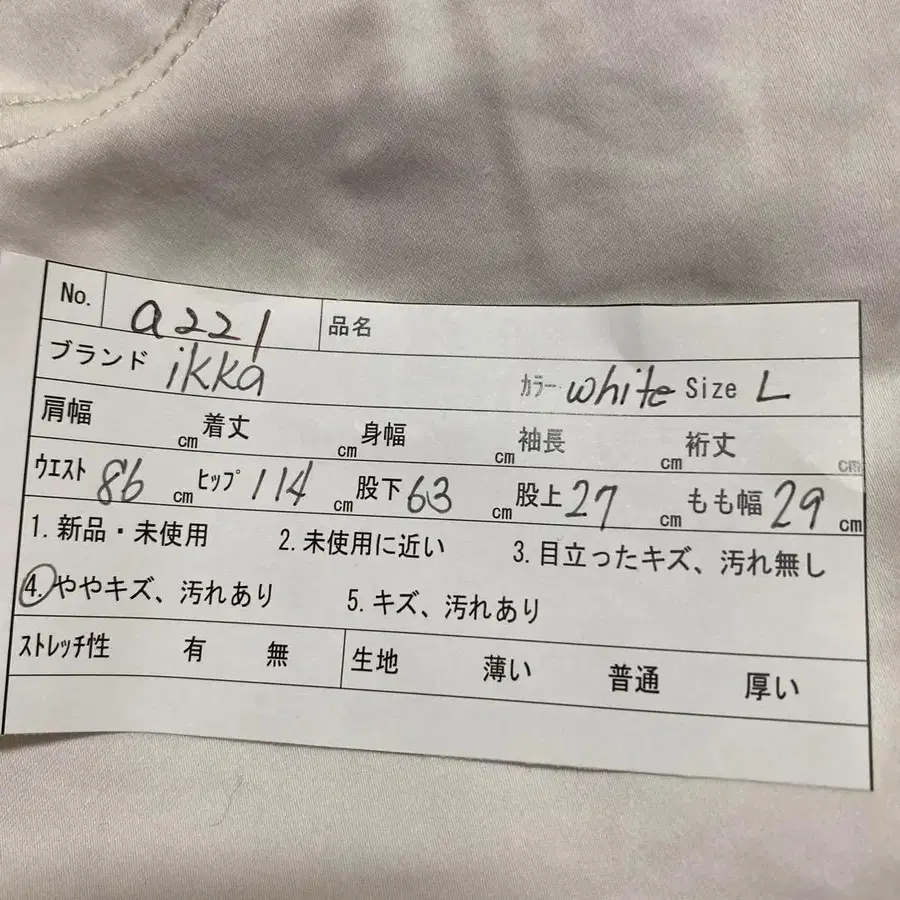 No. a221 品名
ブランド ikka カラー white Size L
肩幅 cm 着丈 cm 身幅 cm 袖長 cm 裄丈 cm
ウエスト 86 cm ヒップ 114 cm 股下 63 cm 股上 27 cm もも幅 29 cm
1. 新品・未使用 2. 未使用に近い 3. 目立ったキズ、汚れ無し
4. ややキズ、汚れあり 5. キズ、汚れあり
ストレッチ性 有 無 生地 薄い 普通 厚い